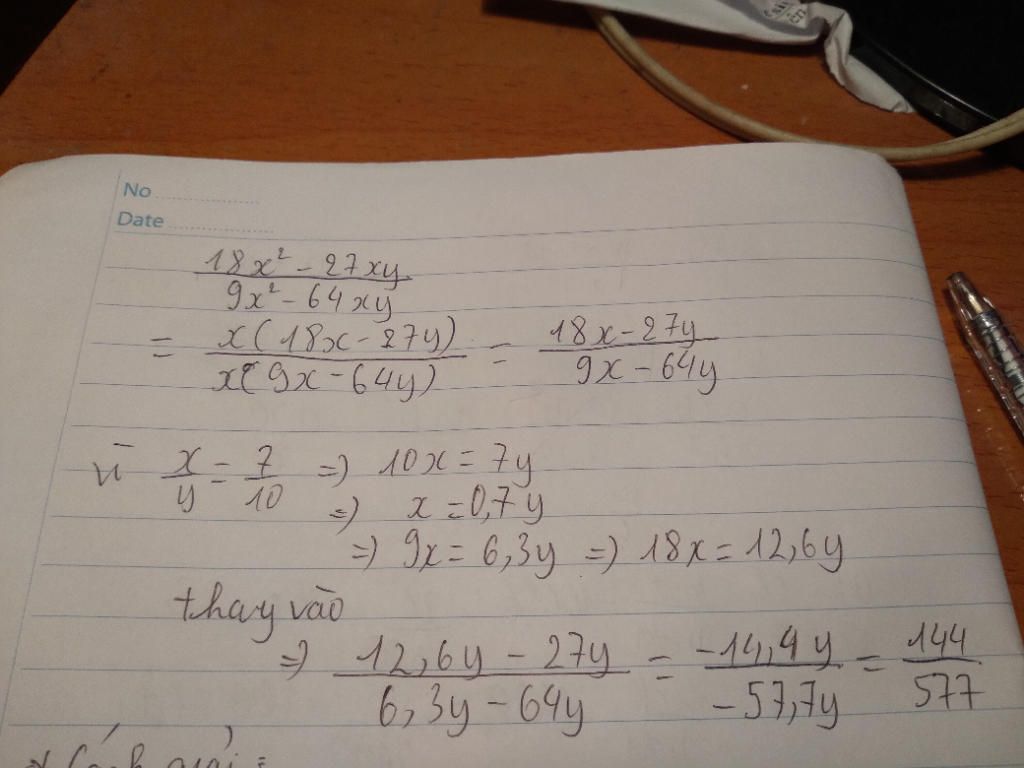 No
Date
18x² - 27xy / 9x² - 64xy
= x(18x - 27y) / x(9x - 64y) = 18x - 27y / 9x - 64y
vì x/y = 7/10 => 10x = 7y
=> x = 0,7y
=> 9x = 6,3y => 18x = 12,6y
thay vào
=> 12,6y - 27y / 6,3y - 64y = -14,4y / -57,7y = 144/577